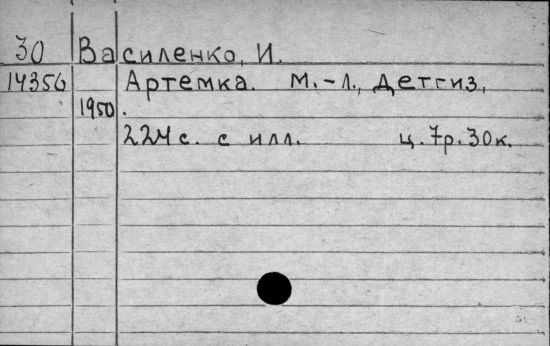 30 Василенко, И.
14356 Артемка. М.-Л., Детгиз,
1950.
224 с. с илл. ц. 7р. 30к.